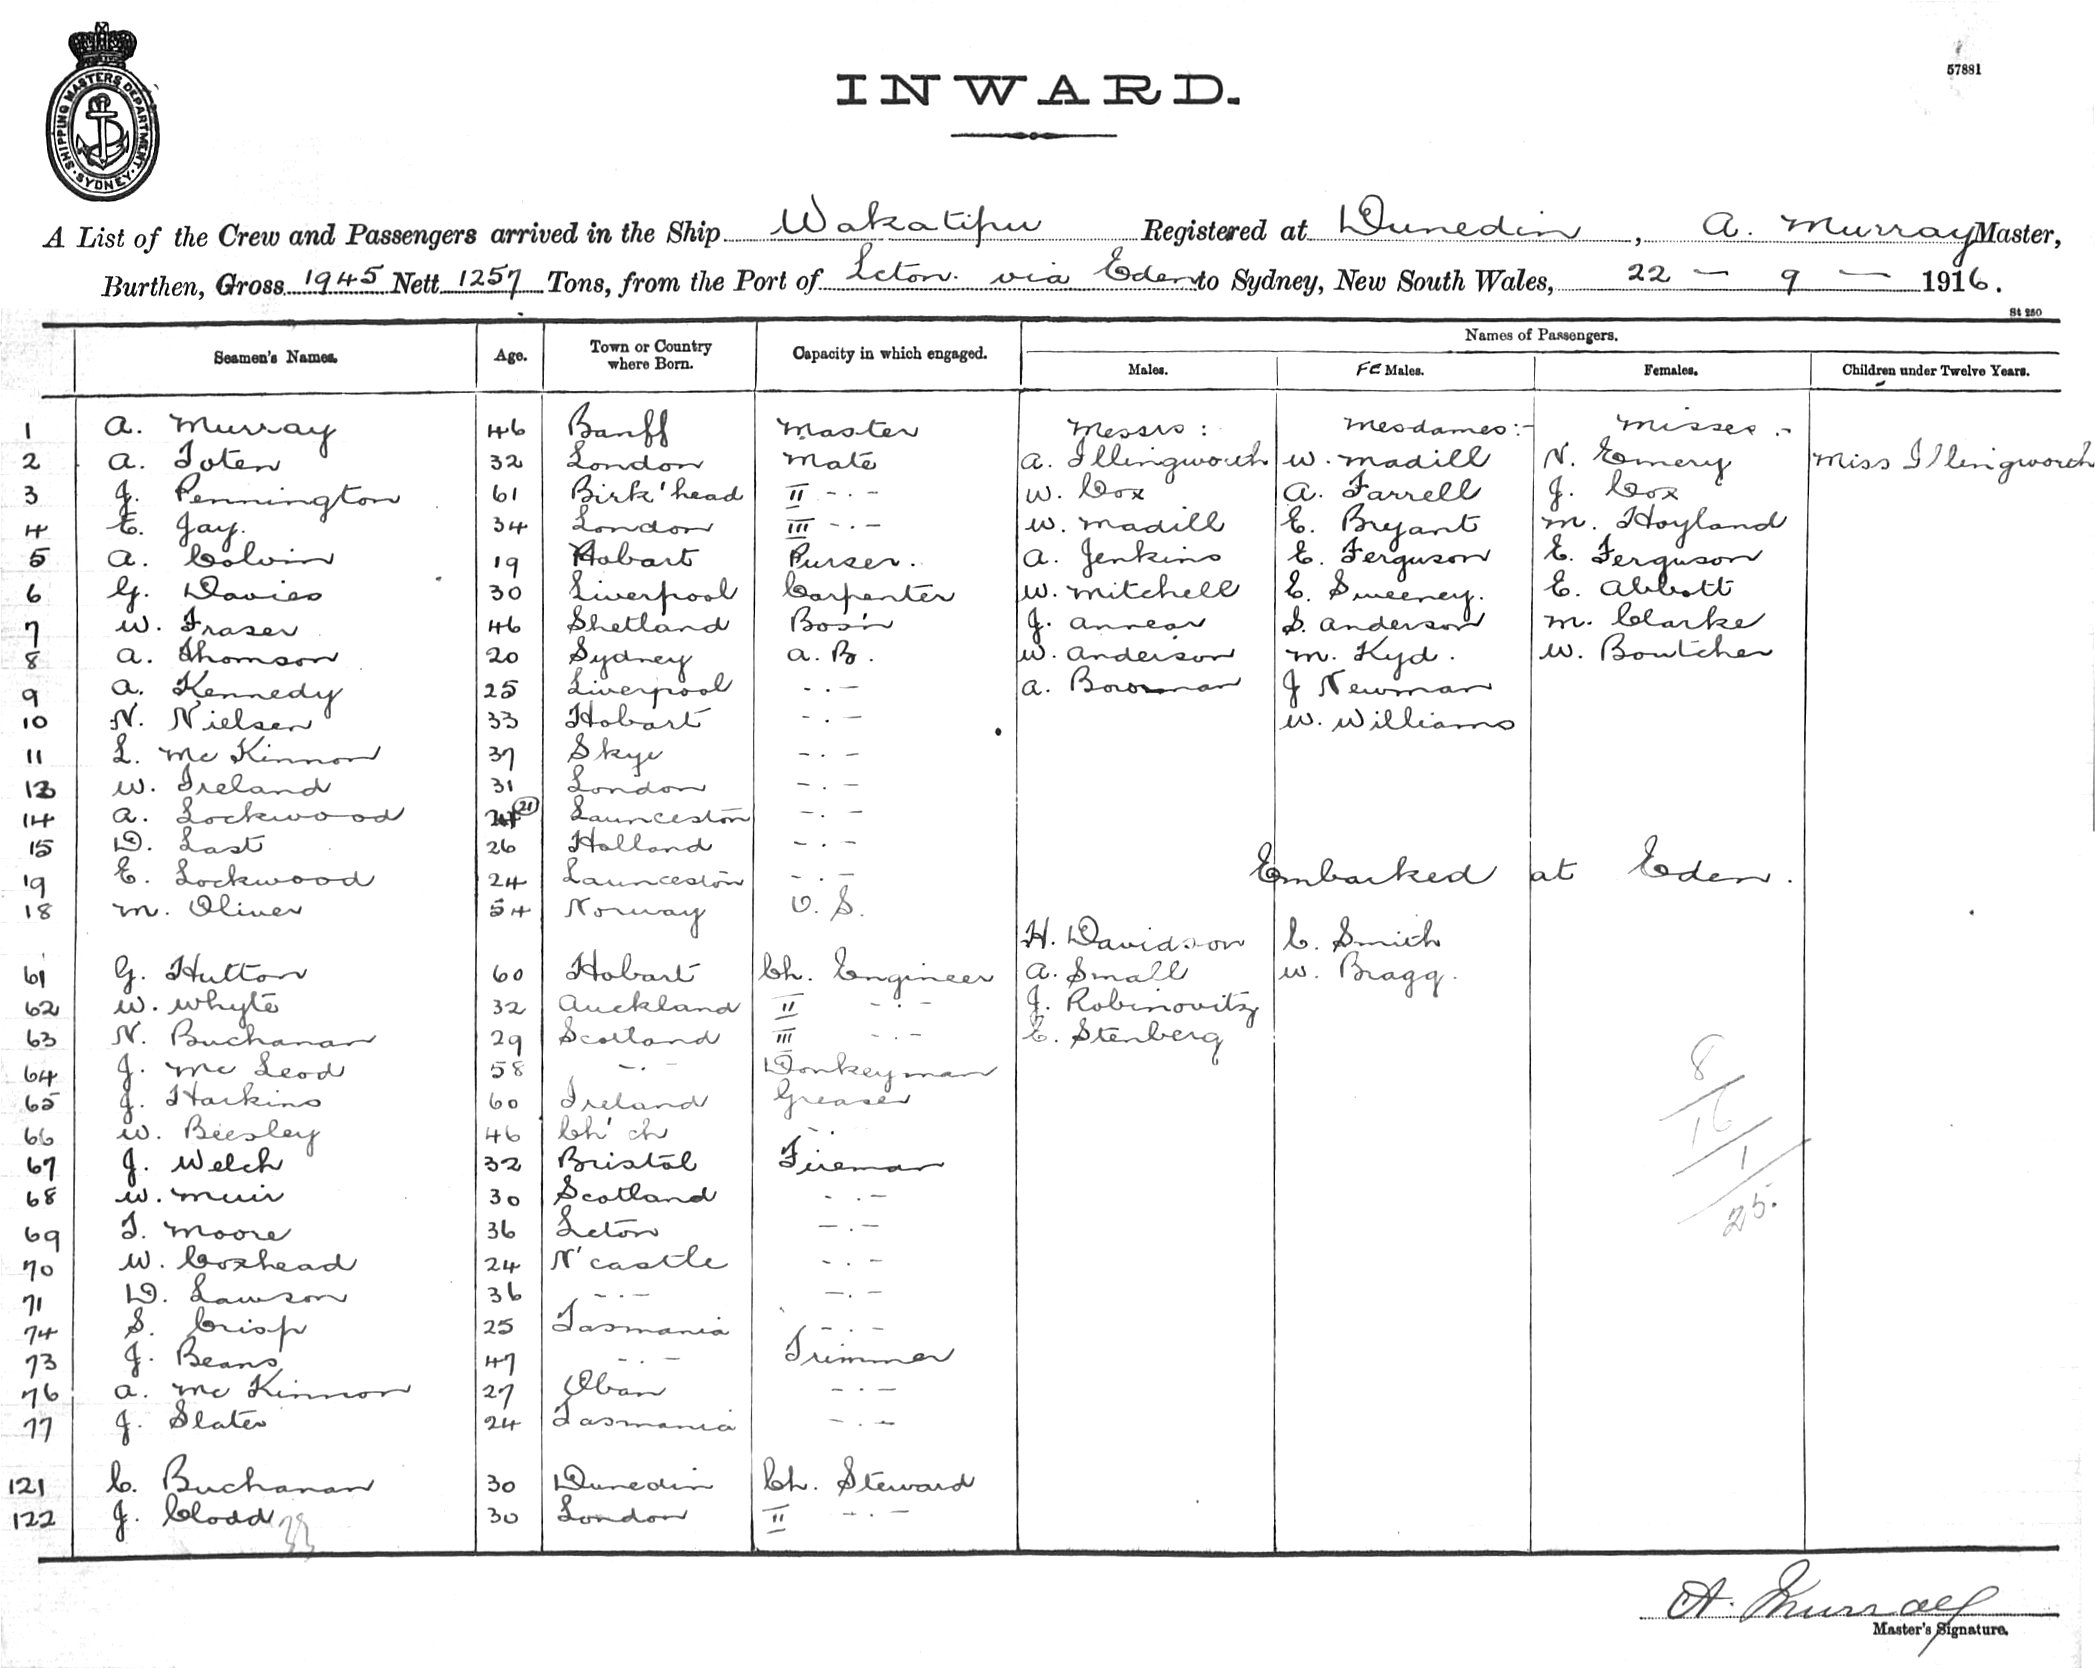 SHIPPING MASTERS DEPARTMENT. SYDNEY
INWARD.
57881
A List of the Crew and Passengers arrived in the Ship Wakatipu Registered at Dunedin, A. Murray Master,
Burthen, Gross 1945 Nett 1257 Tons, from the Port of Lcton. via Eden to Sydney, New South Wales, 22 - 9 - 1916.
St 250
Seamen's Names. Age. Town or Country where Born. Capacity in which engaged. Names of Passengers.
Males. FE Males. Females. Children under Twelve Years.
1 A. Murray 46 Banff Master Messrs: Mesdames:- Misses:-
2 A. Toten 32 London Mate A. Illingworth W. Madill N. Emery Miss Illingworth
3 J. Pennington 61 Birk'head II -.- W. Cox A. Farrell J. Cox
4 E. Jay. 34 London III -.- W. Madill E. Bryant M. Hoyland
5 A. Colvin 19 Hobart Purser. A. Jenkins E. Ferguson E. Ferguson
6 G. Davies 30 Liverpool Carpenter W. Mitchell E. Sweeney. E. Abbott
7 W. Fraser 46 Shetland Bos'n J. Annear S. Anderson M. Clarke
8 A. Thomson 20 Sydney A.B. W. Anderson M. Kyd. W. Boutcher
9 A. Kennedy 25 Liverpool -.- A. Bowman J Newman
10 N. Nielsen 33 Hobart -.- W. Williams
11 L. McKinnon 37 Skye -.-
13 W. Ireland 31 London -.-
14 A. Lockwood 21 Launceston -.-
15 D. Last 26 Holland -.-
19 E. Lockwood 24 Launceston -.- Embarked at Eden.
18 M. Oliver 54 Norway O.S.
H. Davidson C. Smith
61 G. Hutton 60 Hobart Ch. Engineer A. Small W. Bragg.
62 W. Whyte 32 Auckland II -.- J. Robinovitz
63 N. Buchanan 29 Scotland III -.- E. Stenberg
64 J. McLeod 58 -.- Donkeyman 8
65 J. Harkins 60 Ireland Greaser 16
66 W. Beesley 46 Ch'ch -.-
67 J. Welch 32 Bristol Fireman 1
68 W. Muir 30 Scotland -.- 25.
69 T. Moore 36 Lcton -.-
70 W. Coxhead 24 N'castle -.-
71 D. Lawson 36 -.- -.-
74 S. Crisp 25 Tasmania -.-
73 J. Beans 47 -.- Trimmer
76 A. McKinnon 27 Oban -.-
77 J. Slater 24 Tasmania -.-
121 C. Buchanan 30 Dunedin Ch. Steward
122 J. Clodd 30 London II -.-
33
A. Murray
Master's Signature.